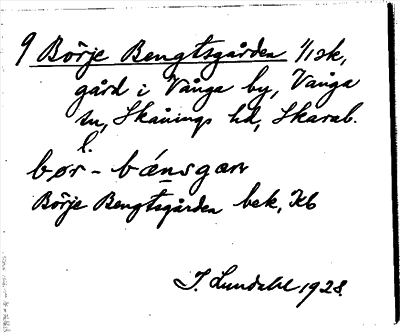 9 Börje Bengtsgården 1/1 sk,
gård i Vånga by, Vånga
sn, Skånings hd, Skarab.
l.
bør - bánsgarn
Börje Bengtsgården bek, Kb
I. Lundahl 1928.